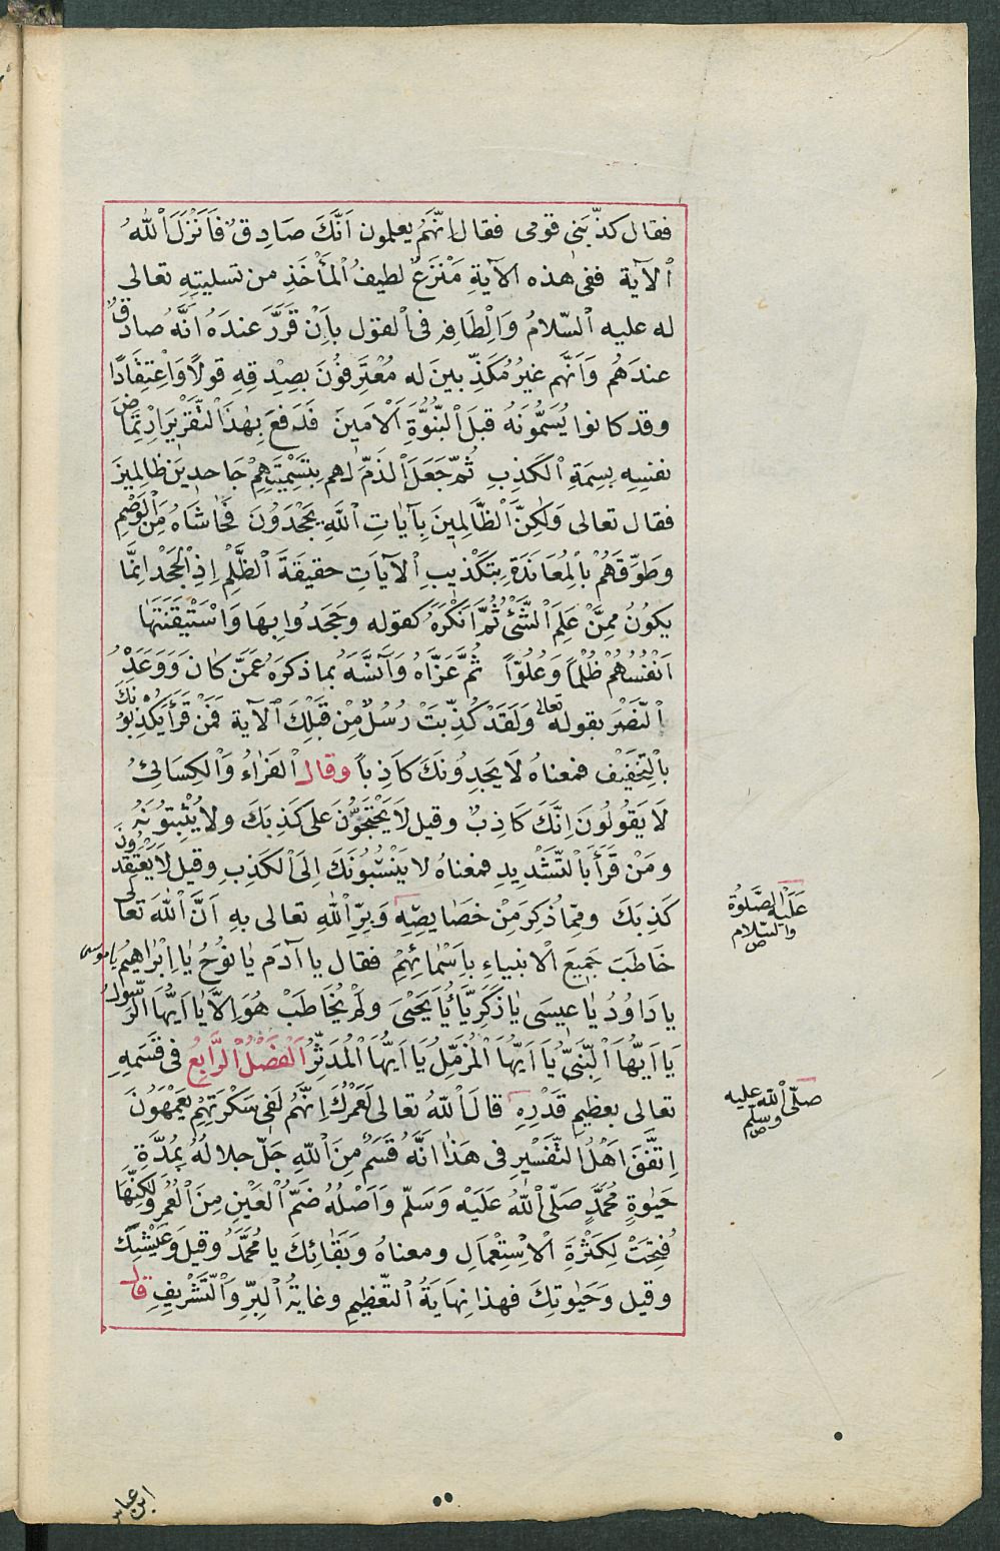 فقال كذّبَنى قومى فقال اِنَّهُم يعلمون اَنَّكَ صَادِقٌ فَاَنْزَلَ اللّٰهُ
الآية ففى هذه الآيةِ مَنْزَعٌ لطيفُ الْمَأْخَذِ من تسليتِهِ تعالى
له عليه السّلامُ وَاِلْطَافِهِ فى القول بِاَنْ قَرَّرَ عندَهُ اَنَّهُ صادقٌ
عندَهُم وَاَنَّهُم غيرُ مُكَذِّبينَ له مُعْتَرِفُونَ بِصِدْقِهِ قولاً وَاعْتِقَادًا
وقد كانوا يُسَمُّونَهُ قبلَ النُّبُوَّةِ الْاَمينَ فَدَفعَ بِهٰذَا التَّقْرِيرِ ارْتِمَاضَ
نفسِهِ بِسِمَةِ الْكَذِبِ ثُمَّ جَعَلَ الذَّمَّ لهم بِتَسْمِيَتِهِمْ جَاحدِينَ ظالِمِينَ
فقال تعالى وَلٰكِنَّ الظَّالِمِينَ بِآيٰاتِ اللّٰهِ يَجْحَدُونَ فَحَاشَاهُ مِنَ الْوَصْمِ
وطَوَّقَهُمْ بِالْمُعَانَدَةِ بِتَكْذِيبِ الْآيَاتِ حقيقَةَ الظُّلْمِ اِذِ الْجَحْدُ اِنَّمَا
يكُونُ مِمَّنْ عَلِمَ الشَّئَْ ثُمَّ اَنْكَرَهُ كقوله وجَحَدُوا بِهَا وَاسْتَيْقَنَتْهَا
اَنْفُسُهُمْ ظُلْمًا وَعُلُوّاً ثُمَّ عَزَّاهُ وَآنَسَهُ بما ذكرَهُ عَمَّنْ كانَ وَوَعَدَهُ
النَّصْرَ بقوله تعالى وَلَقَدْ كُذِّبَتْ رُسُلٌ مِنْ قَبْلِكَ الآية فَمَنْ قَرَأَ يُكْذِبُونَكَ
بالتخفيف فمعناهُ لَا يَجِدُونَكَ كَاذِباً وقال الفَرَّاءُ وَالْكِسَائِىُّ
لَا يَقُولُونَ اِنَّكَ كَاذِبٌ وقيل لَا يَحْتَجُّونَ عَلىٰ كَذِبِكَ ولا يُثْبِتُونَهُ
ومَنْ قَرَأَ بِالتَّشْدِيدِ فمعناهُ لا يَنْسُبُونَكَ اِلَى الْكَذِبِ وقيل لا يَعْتَقِدُونَ
كَذِبَكَ وممّا ذُكِرَ مِنْ خَصَايِصِهِ وَبِرِّ اللّٰهِ تعالى بهِ اَنَّ اللّٰهَ تعالى
خَاطَبَ جَمِيعَ الْانبياءِ بِاَسْمَائِهِمْ فقال يا آدَم يا نُوحُ يا اِبْرٰاهِيمُ يا موسى
يا دَاوُدُ يا عِيسَى يا زَكَرِيَّاءُ يا يَحْيىَ ولَمْ يُخَاطَبْ هُوَ اِلَّا يا اَيُّهَا الرَّسُولُ
يَا اَيُّهَا النَّبىُّ يَا اَيُّهَا الْمُزَّمِّلُ يَا اَيُّهَا الْمُدَّثِّرُ اَلْفَصْلُ الرَّابِعُ فى قَسَمِهِ
تعالى بعظيمِ قَدْرِهِ قالَ اللّٰهُ تعالى لَعَمْرُكَ اِنَّهُمْ لَفى سَكْرَتِهِمْ يَعْمَهُونَ
اِتَّفَقَ اَهْلُ التَّفْسيرِ فى هَذَا اَنَّهُ قَسَمٌ مِنَ اللّٰهِ جَلَّ جلالُهُ بِمُدَّةِ
حَيٰوةِ مُحَمَّدٍ صَلَّى اللّٰهُ عَلَيْهِ وَسَلّم وَاَصْلُهُ ضَمُّ الْعَيْنِ مِنَ الْعُمْرِ وَلٰكِنَّهَا
فُتِحَتْ لِكَثْرَةِ الْاِسْتِعْمَالِ ومعناهُ وَبَقَائِكَ يا مُحَمَّدُ وقيل وَعَيْشِكَ
وقيل وَحَيٰوتِكَ فهذا نِهَايَةُ التَّعْظِيمِ وغايَةُ الْبِرِّ وَالتَّشْرِيفِ قال
عَلَيْهِ الصَّلٰوةُ
والسّلام
ص
صلّى اللّٰه عليه
وسلّم
ص
ابن عباس